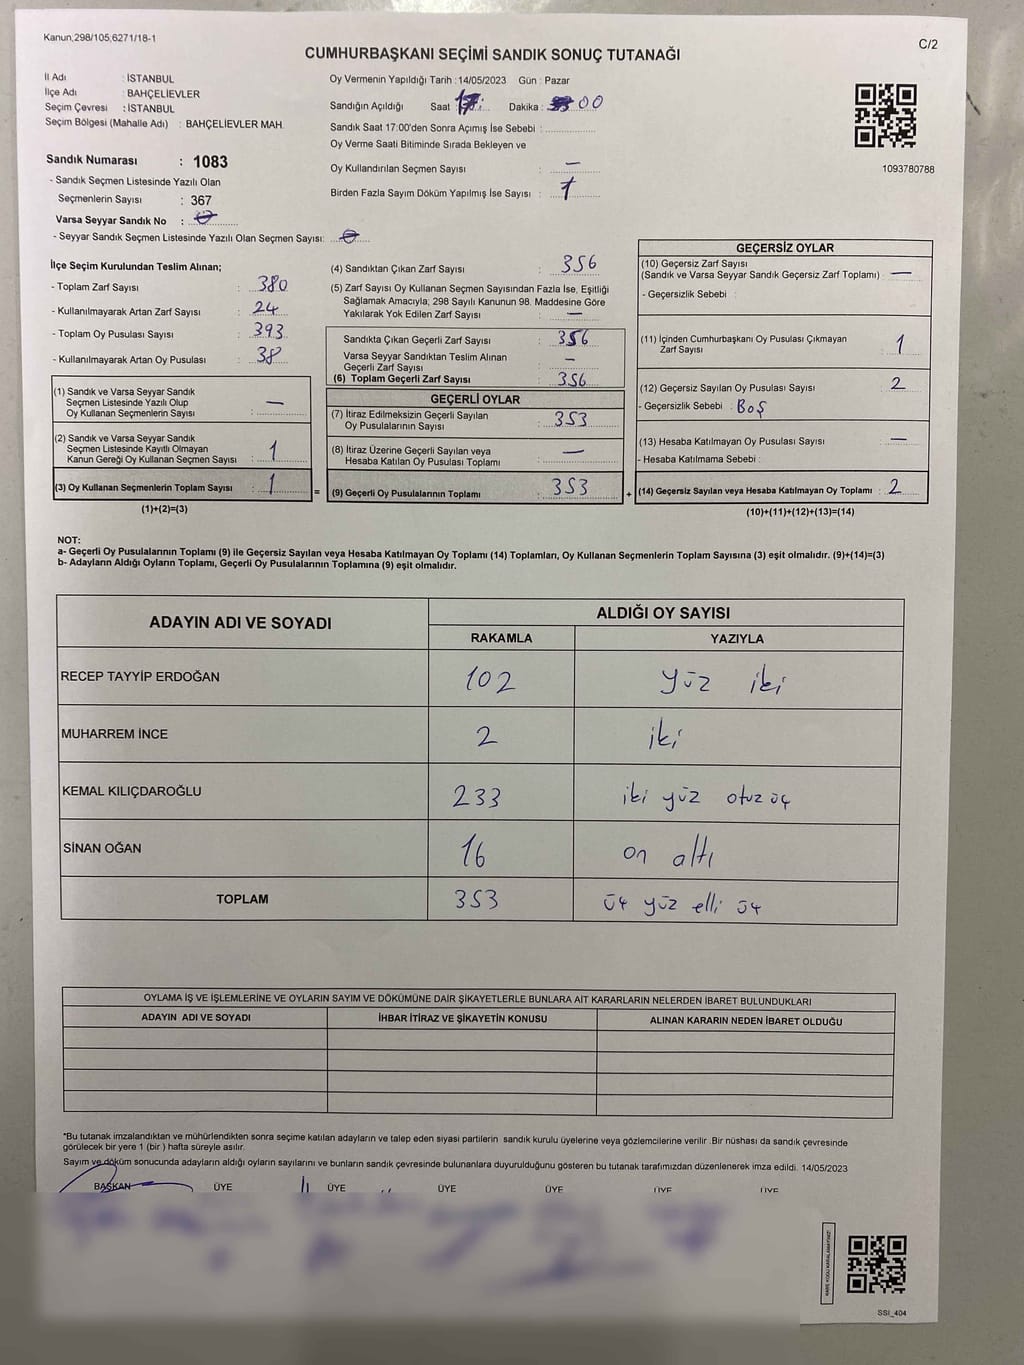 Kanun,298/105,6271/18-1
C/2
CUMHURBAŞKANI SEÇİMİ SANDIK SONUÇ TUTANAĞI
İl Adı : İSTANBUL
İlçe Adı : BAHÇELİEVLER
Seçim Çevresi : İSTANBUL
Seçim Bölgesi (Mahalle Adı) : BAHÇELİEVLER MAH.
Sandık Numarası : 1083
- Sandık Seçmen Listesinde Yazılı Olan
Seçmenlerin Sayısı : 367
Varsa Seyyar Sandık No :
- Seyyar Sandık Seçmen Listesinde Yazılı Olan Seçmen Sayısı:
Oy Vermenin Yapıldığı Tarih :14/05/2023 Gün : Pazar
Sandığın Açıldığı Saat 17 : Dakika : 00
Sandık Saat 17:00'den Sonra Açımış İse Sebebi :
Oy Verme Saati Bitiminde Sırada Bekleyen ve
Oy Kullandırılan Seçmen Sayısı : —
Birden Fazla Sayım Döküm Yapılmış İse Sayısı : 1
1093780788
İlçe Seçim Kurulundan Teslim Alınan;
- Toplam Zarf Sayısı : 380
- Kullanılmayarak Artan Zarf Sayısı : 24
- Toplam Oy Pusulası Sayısı : 393
- Kullanılmayarak Artan Oy Pusulası : 38
(1) Sandık ve Varsa Seyyar Sandık
Seçmen Listesinde Yazılı Olup
Oy Kullanan Seçmenlerin Sayısı : —
(2) Sandık ve Varsa Seyyar Sandık
Seçmen Listesinde Kayıtlı Olmayan
Kanun Gereği Oy Kullanan Seçmen Sayısı : 1
(3) Oy Kullanan Seçmenlerin Toplam Sayısı : 1
(1)+(2)=(3)
=
(4) Sandıktan Çıkan Zarf Sayısı : 356
(5) Zarf Sayısı Oy Kullanan Seçmen Sayısından Fazla İse, Eşitliği
Sağlamak Amacıyla; 298 Sayılı Kanunun 98. Maddesine Göre
Yakılarak Yok Edilen Zarf Sayısı : —
Sandıkta Çıkan Geçerli Zarf Sayısı : 356
Varsa Seyyar Sandıktan Teslim Alınan
Geçerli Zarf Sayısı : —
(6) Toplam Geçerli Zarf Sayısı : 356
GEÇERLİ OYLAR
(7) İtiraz Edilmeksizin Geçerli Sayılan
Oy Pusulalarının Sayısı : 353
(8) İtiraz Üzerine Geçerli Sayılan veya
Hesaba Katılan Oy Pusulası Toplamı : —
(9) Geçerli Oy Pusulalarının Toplamı : 353
+
GEÇERSİZ OYLAR
(10) Geçersiz Zarf Sayısı
(Sandık ve Varsa Seyyar Sandık Geçersiz Zarf Toplamı) : —
- Geçersizlik Sebebi :
(11) İçinden Cumhurbaşkanı Oy Pusulası Çıkmayan
Zarf Sayısı : 1
(12) Geçersiz Sayılan Oy Pusulası Sayısı : 2
- Geçersizlik Sebebi : Boş
(13) Hesaba Katılmayan Oy Pusulası Sayısı : —
- Hesaba Katılmama Sebebi :
(14) Geçersiz Sayılan veya Hesaba Katılmayan Oy Toplamı : 2
(10)+(11)+(12)+(13)=(14)
NOT:
a- Geçerli Oy Pusulalarının Toplamı (9) ile Geçersiz Sayılan veya Hesaba Katılmayan Oy Toplamı (14) Toplamları, Oy Kullanan Seçmenlerin Toplam Sayısına (3) eşit olmalıdır. (9)+(14)=(3)
b- Adayların Aldığı Oyların Toplamı, Geçerli Oy Pusulalarının Toplamına (9) eşit olmalıdır.
ADAYIN ADI VE SOYADI ALDIĞI OY SAYISI
RAKAMLA YAZIYLA
RECEP TAYYİP ERDOĞAN 102 yüz iki
MUHARREM İNCE 2 iki
KEMAL KILIÇDAROĞLU 233 iki yüz otuz üç
SİNAN OĞAN 16 on altı
TOPLAM 353 üç yüz elli üç
OYLAMA İŞ VE İŞLEMLERİNE VE OYLARIN SAYIM VE DÖKÜMÜNE DAİR ŞİKAYETLERLE BUNLARA AİT KARARLARIN NELERDEN İBARET BULUNDUKLARI
ADAYIN ADI VE SOYADI İHBAR İTİRAZ VE ŞİKAYETİN KONUSU ALINAN KARARIN NEDEN İBARET OLDUĞU
*Bu tutanak imzalandıktan ve mühürlendikten sonra seçime katılan adayların ve talep eden siyasi partilerin sandık kurulu üyelerine veya gözlemcilerine verilir .Bir nüshası da sandık çevresinde
görülecek bir yere 1 (bir ) hafta süreyle asılır.
Sayım ve döküm sonucunda adayların aldığı oyların sayılarını ve bunların sandık çevresinde bulunanlara duyurulduğunu gösteren bu tutanak tarafımızdan düzenlenerek imza edildi. 14/05/2023
BAŞKAN ÜYE ÜYE ÜYE ÜYE ÜYE ÜYE
SSI_404